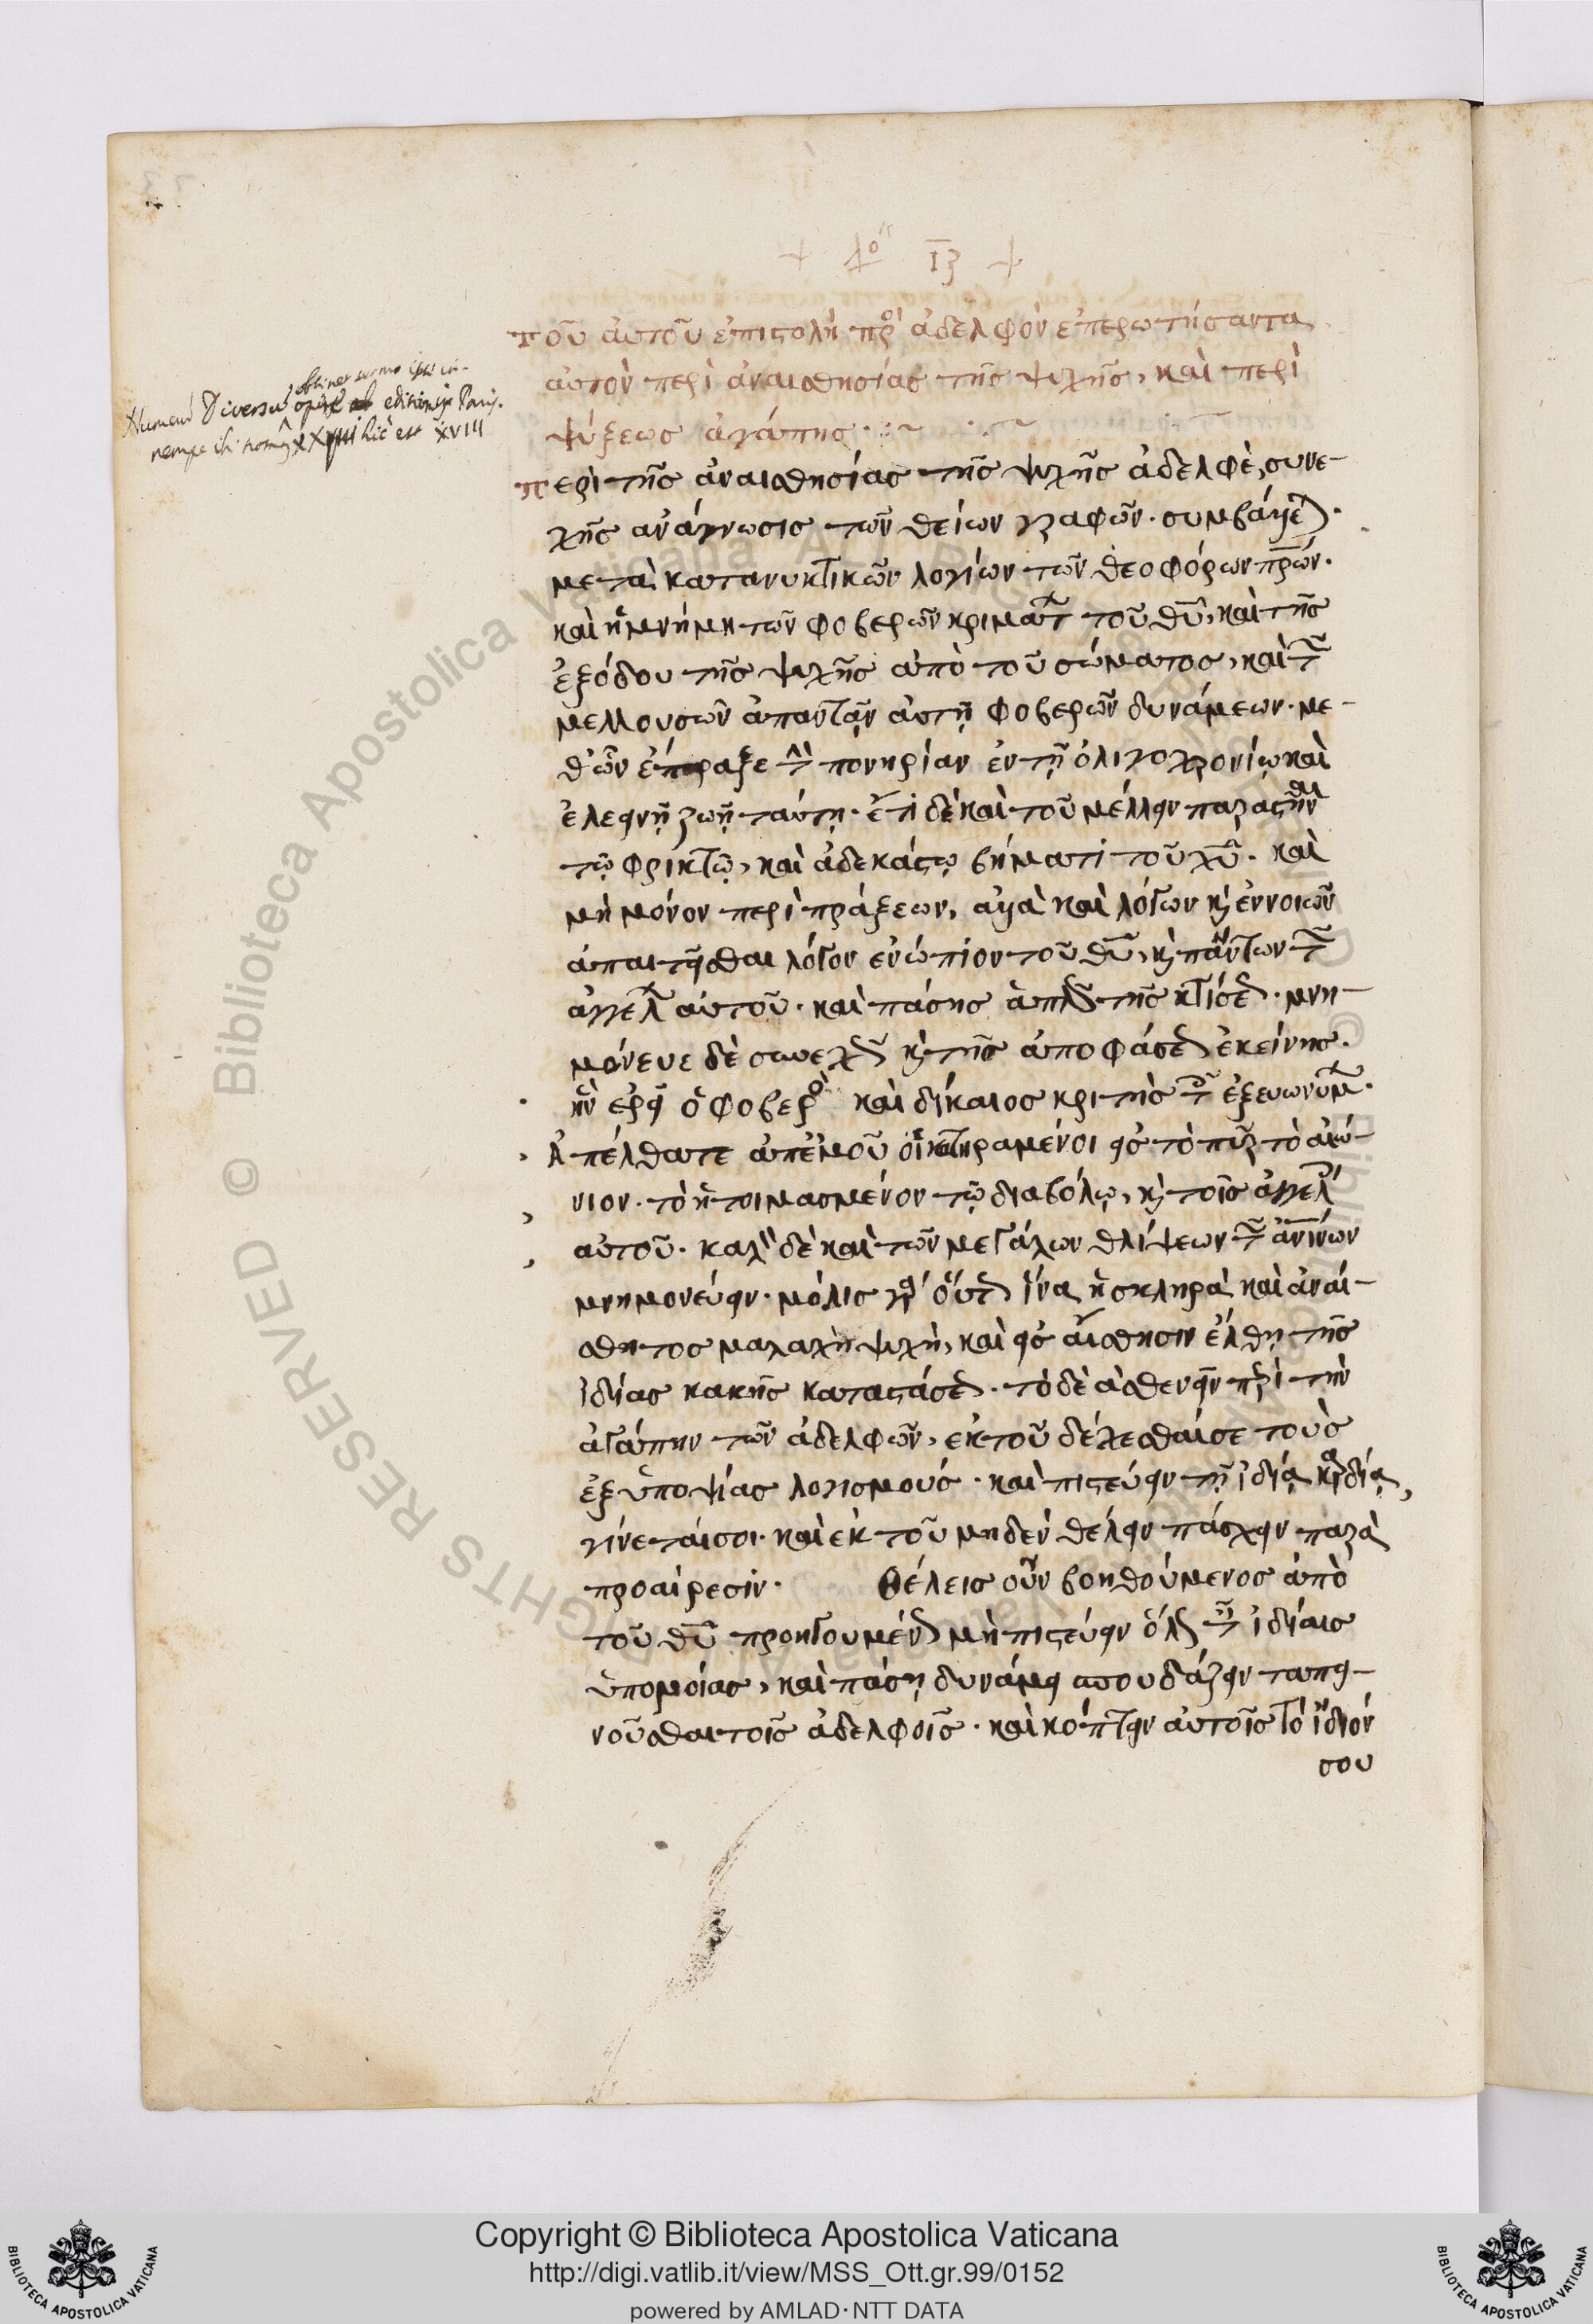 ιζ
τοῦ αὐτοῦ ἐπιστολὴ πρὸς ἀδελφὸν ἐπερωτήσαντα
αὐτὸν περὶ ἀναισθησίας τῆς ψυχῆς, καὶ περὶ
ψύξεως ἀγάπης
περὶ τῆς ἀναισθησίας τῆς ψυχῆς ἀδελφὲ, συνε-
χὴς ἀνάγνωσις τῶν θείων γραφῶν. συμβάλλε().
μετὰ κατανυκτικῶν λογίων τῶν θεοφόρων πρων.
καὶ ἡ μνήμη τῶν φοβερῶν κριμάτ τοῦ θυ, καὶ τῆς
ἐξόδου τῆς ψυχῆς ἀπὸ τοῦ σώματος, καὶ τ
μελλουσῶν ἀπαντᾶν αὐτῇ φοβερῶν δυνάμεων. με-
θ' ὧν ἔπραξε τὴν πονηρίαν ἐν τῇ ὀλιγοχρονίῳ καὶ
ἐλεεινῇ ζωῇ ταύτῃ. ἔτι δὲ καὶ τοῦ μέλλειν παραστῆναι
τῷ φρικτῷ, καὶ ἀδεκάστῳ βήματι τοῦ χυ. καὶ
μὴ μόνον περὶ πράξεων, ἀλλὰ καὶ λόγων κ ἐννοιῶν
ἀπαιτεῖσθαι λόγον ἐνώπιον τοῦ θυ, κ πάντων τ
ἀγγέλ αὐτοῦ. καὶ πάσης ἁπλῶς τῆς κτίσε(). μνη-
μόνευε δὲ συνεχῶς κ τῆς ἀποφάσε() ἐκείνης.
ἣν ἐρεῖ ὁ φοβερὸς καὶ δίκαιος κριτὴς τοῖς ἐξ εὐωνύμ.
Ἀπέλθατε ἀπ' ἐμοῦ οἱ κατηραμένοι εἰς τὸ πῦρ τὸ αἰώ-
νιον. τὸ ἡτοιμασμένον τῷ διαβόλῳ, κ τοῖς ἀγγέλ
αὐτοῦ. καλὸν δὲ καὶ τῶν μεγάλων θλίψεων τ ἀνίνων
μνημονεύειν. μόλις γὰρ οὕτ() ἵνα ἡ σκληρὰ καὶ ἀναί-
σθητος μαλαχῇ ψυχὴ, καὶ εἰς αἴσθησιν ἔλθῃ τῆς
ἰδίας κακῆς καταστάσε(). τὸ δὲ ἀσθενεῖν περὶ τὴν
ἀγάπην τῶν ἀδελφῶν, ἐκ τοῦ δέχεσθαί σε τοὺς
ἐξ ὑποψίας λογισμούς. καὶ πιστεύειν τῇ ἰδίᾳ καρδίᾳ,
γίνεταί σοι. καὶ ἐκ τοῦ μηδὲν θέλειν πάσχειν παρὰ
προαίρεσιν. Θέλεις οὖν βοηθούμενος ἀπὸ
τοῦ θυ προηγουμέν() μὴ πιστεύειν ὅλως ταῖς ἰδίαις
ὑπονοίαις, καὶ πάσῃ δυνάμει σπουδάζειν ταπει-
νοῦσθαι τοῖς ἀδελφοῖς. καὶ κόπτειν αὐτοῖς τὸ ἴδιόν
σου
Copyright © Biblioteca Apostolica Vaticana
http://digi.vatlib.it/view/MSS_Ott.gr.99/0152
powered by AMLAD·NTT DATA